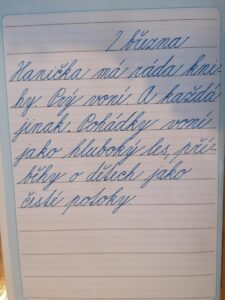 2 března
Hanička má ráda kni-
hy. Prý voní. A každá
jinak. Pohádky voní
jako hluboký les, pří-
běhy o dětech jako
čisté potoky.